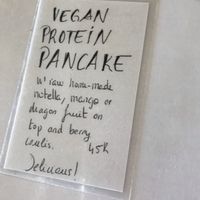 VEGAN
PROTEIN
PANCAKE
w/ raw home-made
nutella, mango or
dragon fruit on
top and berry
coulis. 45k
Delicious!